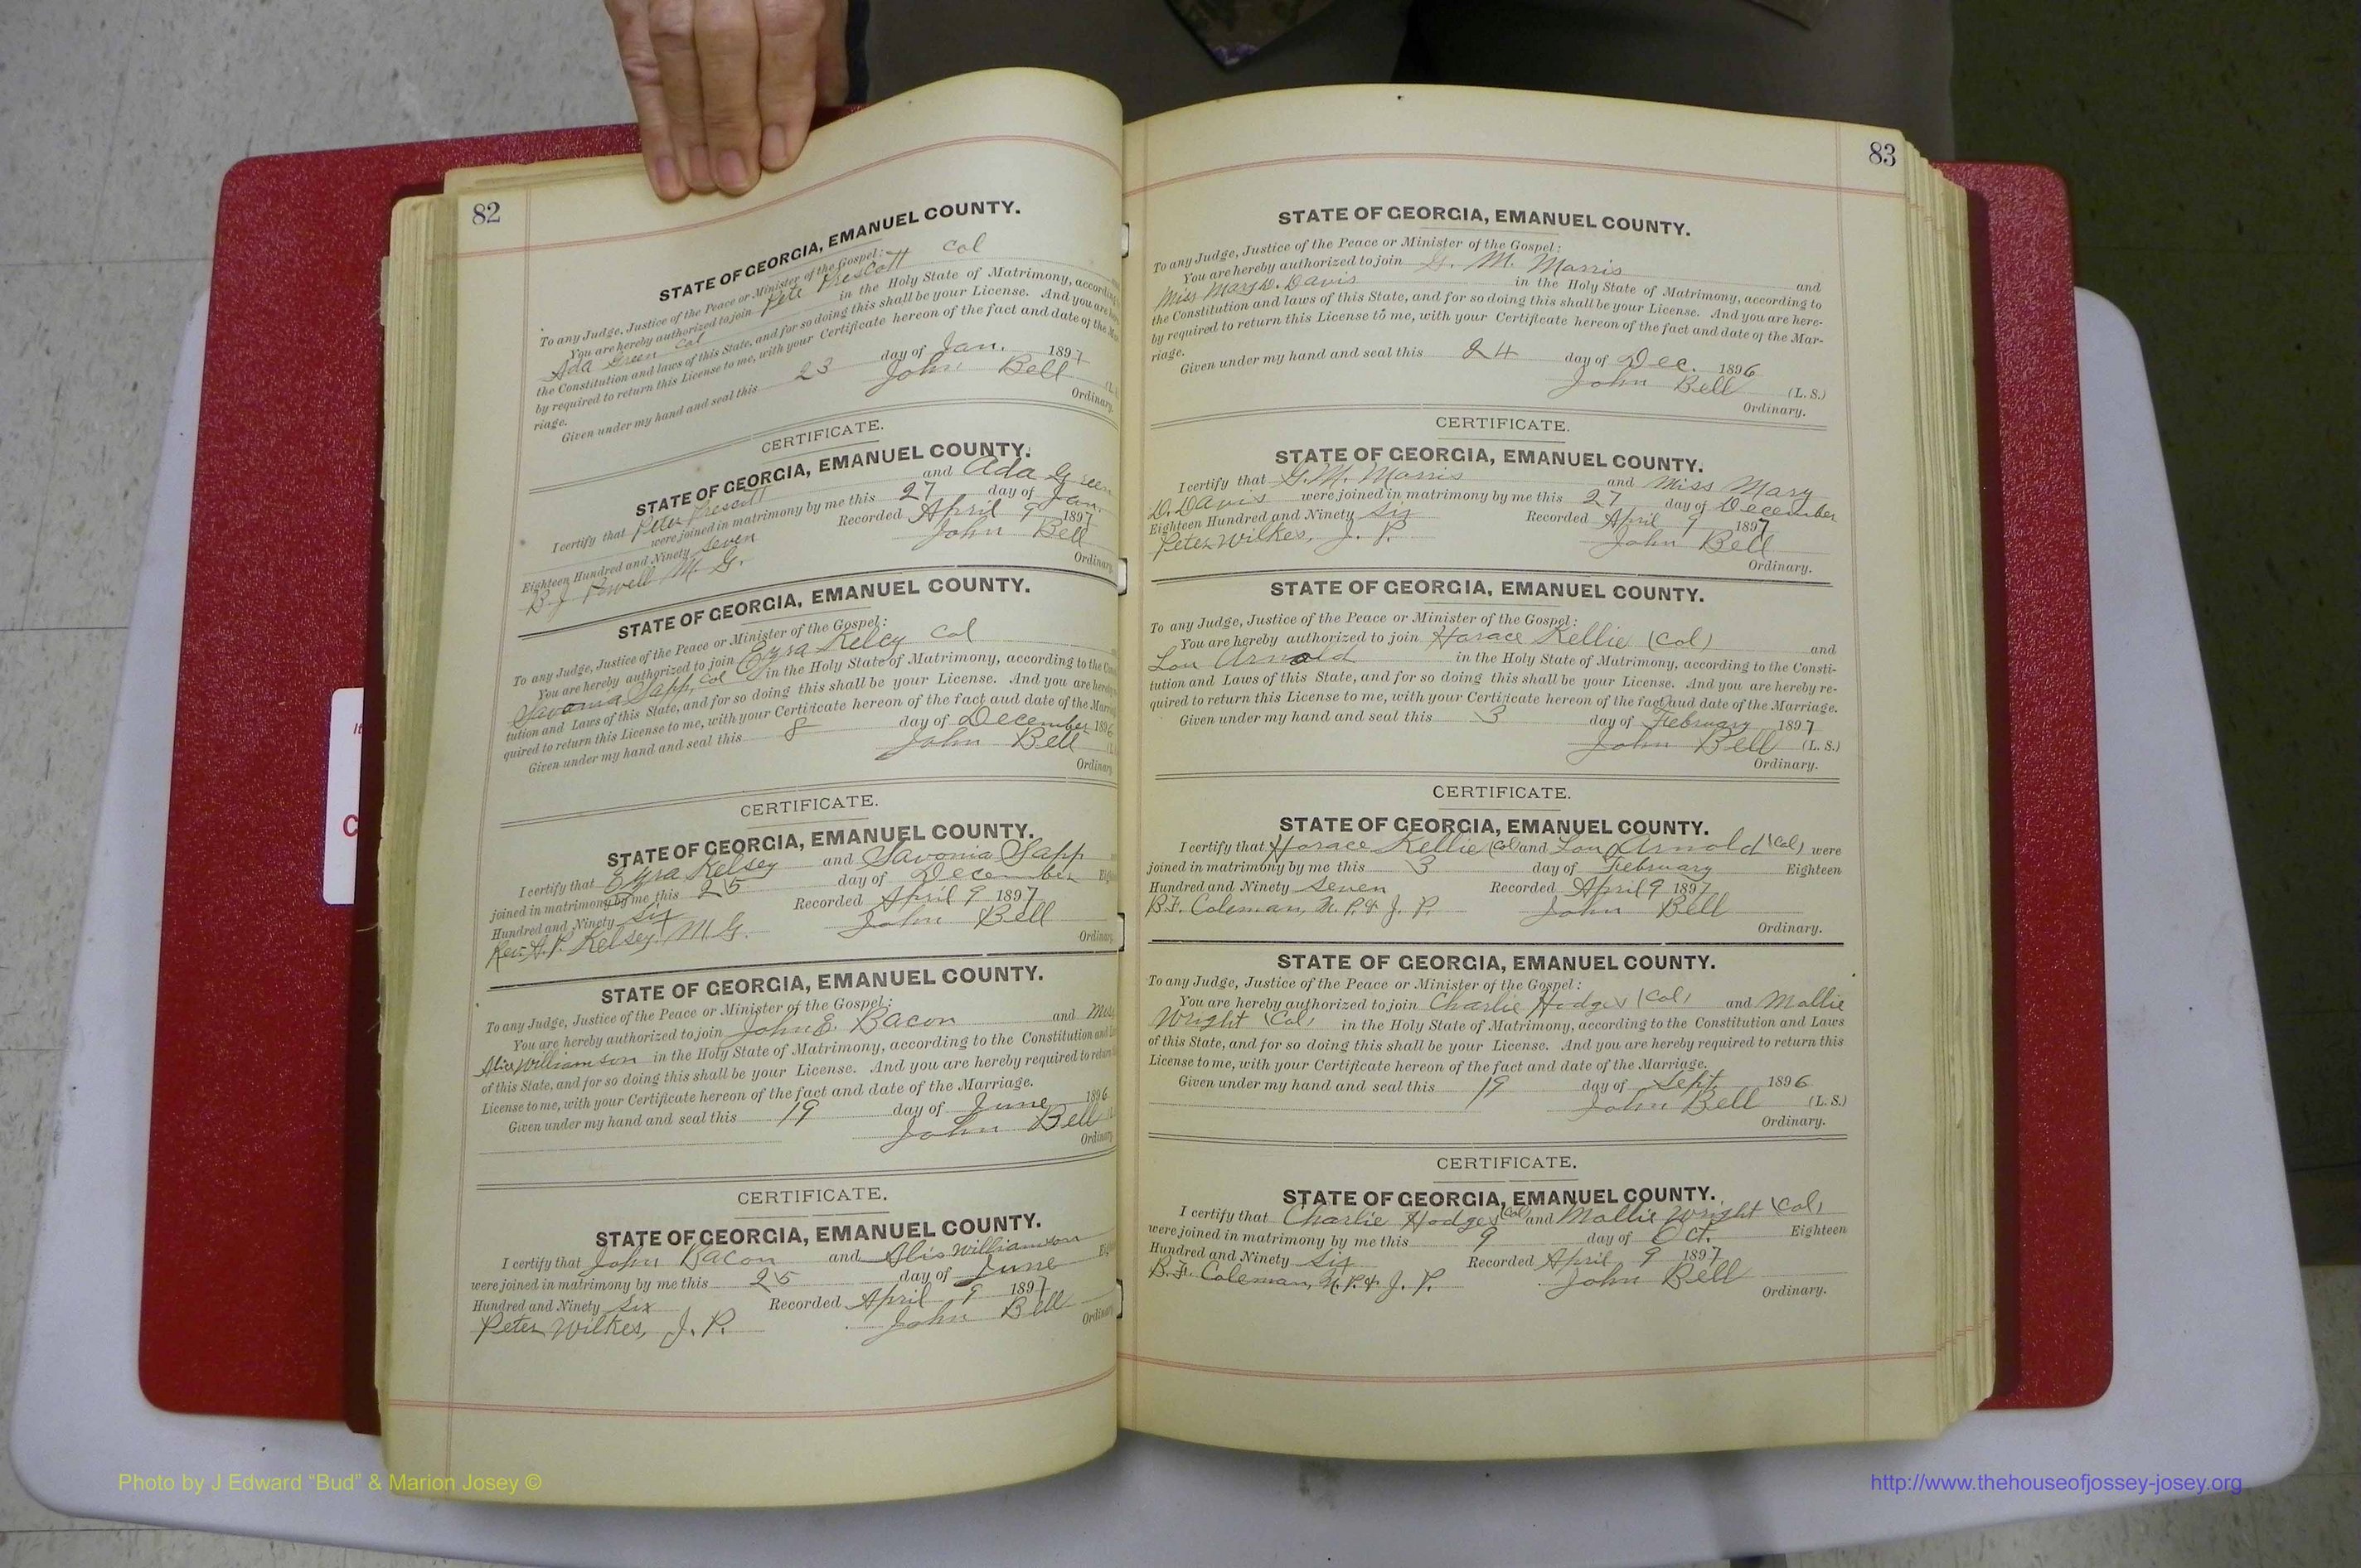 82
STATE OF GEORGIA, EMANUEL COUNTY.
To any Judge, Justice of the Peace or Minister of the Gospel:
You are hereby authorized to join Pete Prescott Col
Ada Green Col in the Holy State of Matrimony, according
the Constitution and laws of this State, and for so doing this shall be your License. And you are here
by required to return this License to me, with your Certificate hereon of the fact and date of the Mar
riage.
Given under my hand and seal this 23 day of Jan. 1897
John Bell (L.
Ordinary.
CERTIFICATE.
STATE OF GEORGIA, EMANUEL COUNTY.
I certify that Peter Prescott and Ada Green
were joined in matrimony by me this 27 day of Jan.
Eighteen Hundred and Ninety seven Recorded April 9 1897
B. J. Powell M. G. John Bell
Ordinary.
STATE OF GEORGIA, EMANUEL COUNTY.
To any Judge, Justice of the Peace or Minister of the Gospel:
You are hereby authorized to join Ezra Kelcy Col
Savonia Sapp, Col in the Holy State of Matrimony, according to the Con
tution and Laws of this State, and for so doing this shall be your License. And you are hereby
quired to return this License to me, with your Certificate hereon of the fact aud date of the Marri
Given under my hand and seal this 8 day of December 1896
John Bell (L
Ordinary.
CERTIFICATE.
STATE OF GEORGIA, EMANUEL COUNTY.
I certify that Ezra Kelsey and Savonia Sapp
joined in matrimony by me this 25 day of December Eigh
Hundred and Ninety six Recorded April 9 1897
Rev. A. P. Kelsey M. G. John Bell
Ordinary.
STATE OF GEORGIA, EMANUEL COUNTY.
To any Judge, Justice of the Peace or Minister of the Gospel:
You are hereby authorized to join John E. Bacon and Miss
Alice Williamson in the Holy State of Matrimony, according to the Constitution and
of this State, and for so doing this shall be your License. And you are hereby required to return
License to me, with your Certificate hereon of the fact and date of the Marriage.
Given under my hand and seal this 19 day of June 1896
John Bell
Ordinary
CERTIFICATE.
STATE OF GEORGIA, EMANUEL COUNTY.
I certify that John Bacon and Alis Williamson
were joined in matrimony by me this 25 day of June Eigh
Hundred and Ninety six Recorded April 9 1897
Peter Wilkes, J. P. John Bell
Ordinary
83
STATE OF GEORGIA, EMANUEL COUNTY.
To any Judge, Justice of the Peace or Minister of the Gospel:
You are hereby authorized to join G. M. Morris and
Miss Mary D. Davis in the Holy State of Matrimony, according to
the Constitution and laws of this State, and for so doing this shall be your License. And you are here-
by required to return this License to me, with your Certificate hereon of the fact and date of the Mar-
riage.
Given under my hand and seal this 24 day of Dec. 1896
John Bell (L. S.)
Ordinary.
CERTIFICATE.
STATE OF GEORGIA, EMANUEL COUNTY.
I certify that G. M. Morris and Miss Mary
D. Davis were joined in matrimony by me this 27 day of December
Eighteen Hundred and Ninety six Recorded April 9 1897
Peter Wilkes, J. P. John Bell
Ordinary.
STATE OF GEORGIA, EMANUEL COUNTY.
To any Judge, Justice of the Peace or Minister of the Gospel:
You are hereby authorized to join Horace Kellie (Col) and
Lou Arnold in the Holy State of Matrimony, according to the Consti-
tution and Laws of this State, and for so doing this shall be your License. And you are hereby re-
quired to return this License to me, with your Certificate hereon of the fact aud date of the Marriage.
Given under my hand and seal this 3 day of February 1897
John Bell (L. S.)
Ordinary.
CERTIFICATE.
STATE OF GEORGIA, EMANUEL COUNTY.
I certify that Horace Kellie (Col) and Lou Arnold (Col) were
joined in matrimony by me this 3 day of February Eighteen
Hundred and Ninety seven Recorded April 9 1897
B. F. Coleman, N. P. & J. P. John Bell
Ordinary.
STATE OF GEORGIA, EMANUEL COUNTY.
To any Judge, Justice of the Peace or Minister of the Gospel:
You are hereby authorized to join Charlie Hodges (Col) and Mollie
Wright (Col) in the Holy State of Matrimony, according to the Constitution and Laws
of this State, and for so doing this shall be your License. And you are hereby required to return this
License to me, with your Certificate hereon of the fact and date of the Marriage.
Given under my hand and seal this 19 day of Sept. 1896
John Bell (L. S.)
Ordinary.
CERTIFICATE.
STATE OF GEORGIA, EMANUEL COUNTY.
I certify that Charlie Hodges (Col) and Mollie Wright (Col)
were joined in matrimony by me this 9 day of Oct. Eighteen
Hundred and Ninety Six Recorded April 9 1897
B. F. Coleman, N. P. & J. P. John Bell
Ordinary.
Photo by J Edward "Bud" & Marion Josey ©
http://www.thehouseofjossey-josey.org